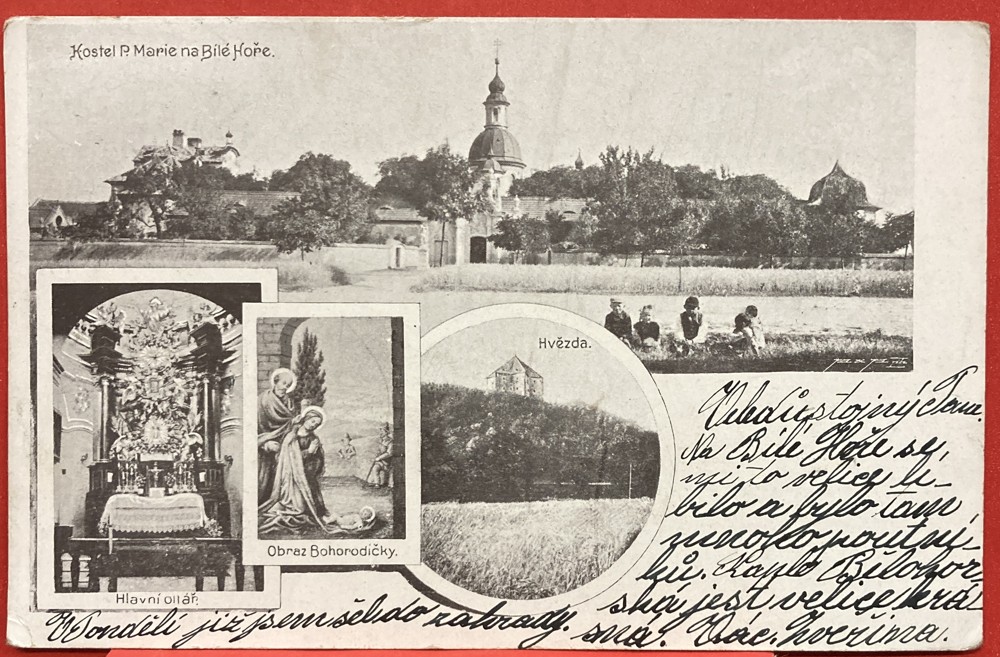 Kostel P. Marie na Bílé Hoře.
Hvězda.
Obraz Bohorodičky.
Hlavní oltář.
Veledůstojný Pane.
Na Bílé Hoře se
mi to velice lí-
bilo a bylo tam
mnoho poutní-
ků. Kaple Bělohor-
ská jest velice krá-
sná. Vác. Zvěřina.
V Pondělí již jsem šel do zahrady.